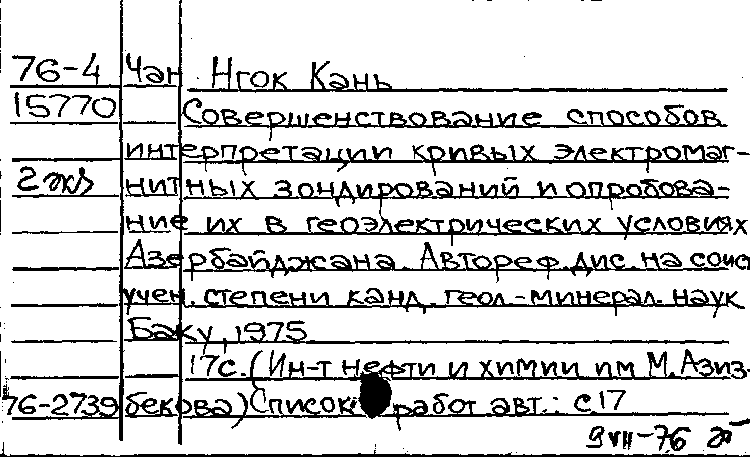 76-4 Чан Нгок Кань
15770 Совершенствование способов
интерпретации кривых электромаг-
2 экз нитных зондирований и опробова-
ние их в геоэлектрических условиях
Азербайджана. Автореф. дис. на соис
учен. степени канд. геол.-минерал. наук
Баку, 1975
17с. (Ин-т нефти и химии им М. Азиз-
76-2739 бекова) Список работ авт.: с 17
9 VII-76